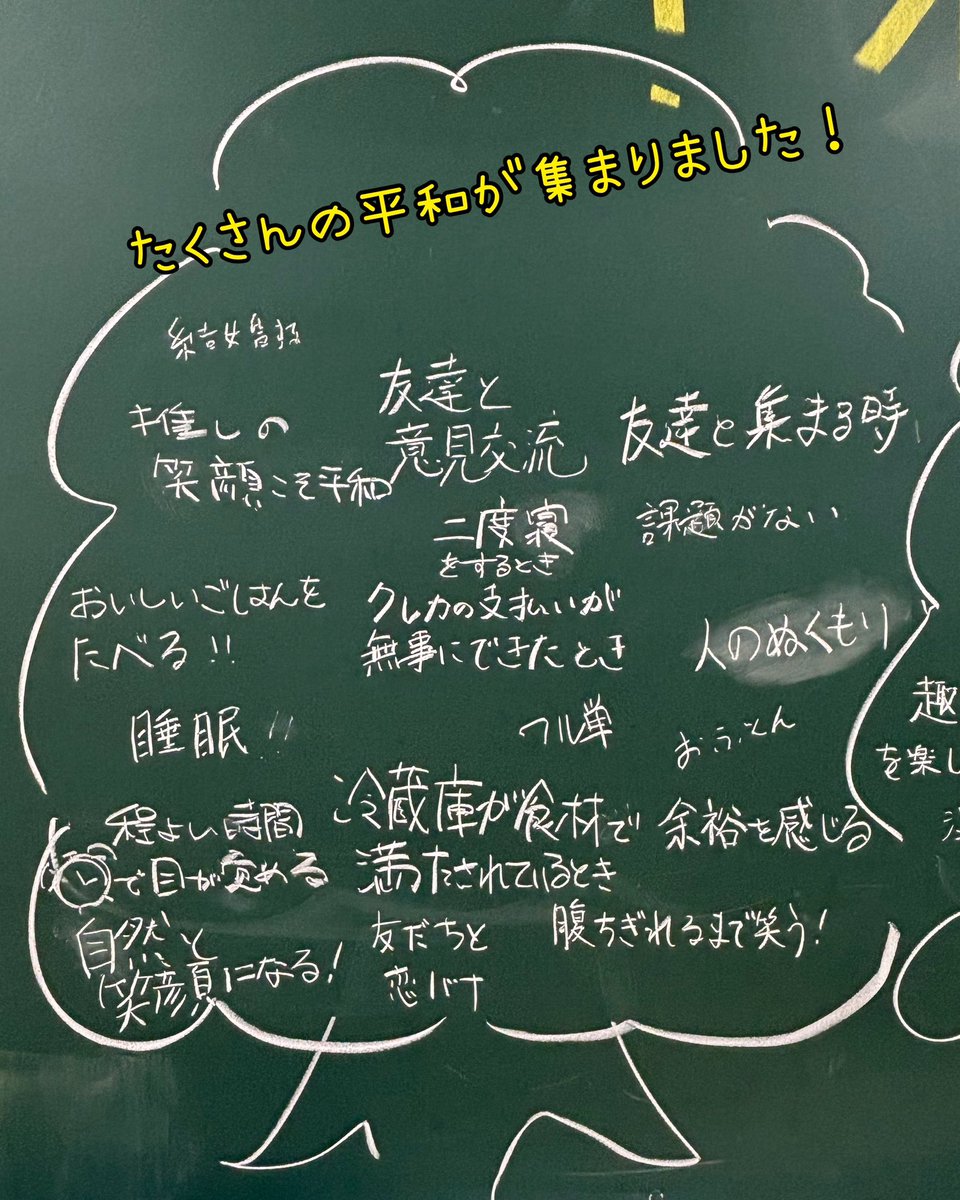 たくさんの平和が集まりました！
結婚報告
推しの
笑顔こそ平和
友達と
意見交流
友達と集まる時
二度寝
をするとき
課題がない
おいしいごはんを
たべる!!
クレカの支払いが
無事にできたとき
人のぬくもり
睡眠!!
フル単
おふとん
程よい時間
で目が覚める
冷蔵庫が食材で
満たされているとき
余裕を感じる
自然と
笑顔になる!
友だちと
恋バナ
腹ちぎれるまで笑う!
趣
を楽し